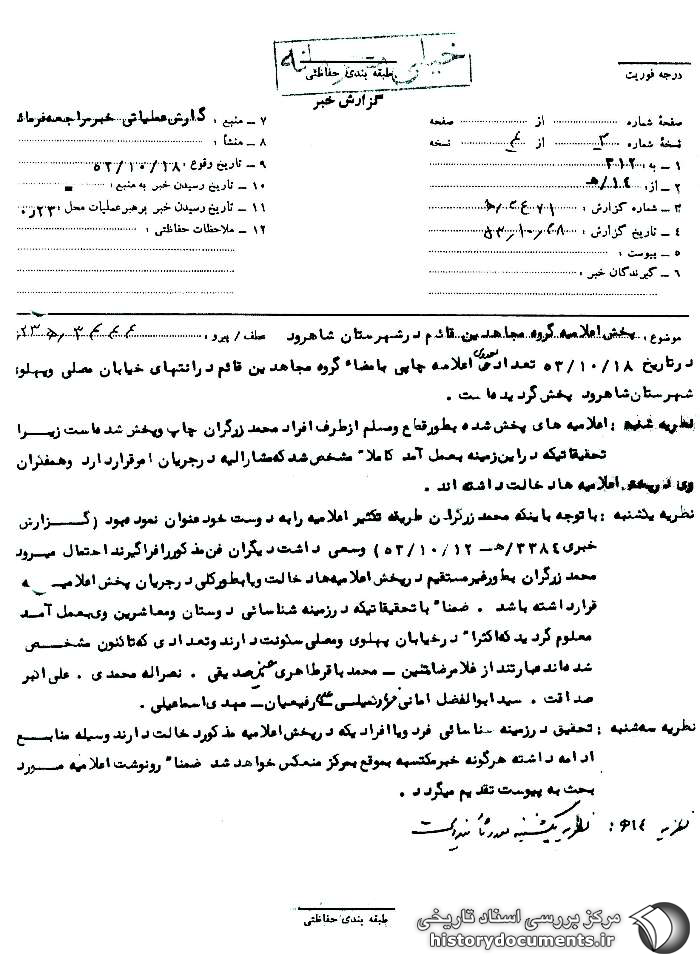 خیلی محرمانه
درجه فوریت
طبقه بندی حفاظتی
گزارش خبر
صفحه شماره از صفحه
نسخه شماره ۳ از نسخه
۱ – به : ۳۱۲
۲ – از : ۱۴/ﻫ
۳ – شماره گزارش :
۴ – تاریخ گزارش :
۵ – پیوست :
۶ – گیرندگان خبر :
۷ – منبع : گزارش عملیاتی خبر مراجعه فرمائ
۸ – منشأ :
۹ – تاریخ وقوع : ۵۳/۱۰/۱۸
۱۰ – تاریخ رسیدن خبر به منبع :
۱۱ – تاریخ رسیدن خبر برهبر عملیات محل :
۱۲ – ملاحظات حفاظتی :
موضوع : پخش اعلامیه گروه مجاهدین قائم در شهرستان شاهرود عطف / پیرو :
در تاریخ ۵۳/۱۰/۱۸ تعداد معدودی اعلامیه چاپی بامضاء گروه مجاهدین قائم در انتهای خیابان مصلی و پهلوی
شهرستان شاهرود پخش گردیده است .
نظریه شنبه : اعلامیه های پخش شده بطور قطع و مسلم از طرف افراد محمد زرگران چاپ و پخش شده است زیرا
تحقیقاتیکه در این زمینه بعمل آمد کاملا" مشخص شد که مشارالیه در جریان امر قرار دارد و همفکران
وی در پخش اعلامیه ها دخالت داشته اند .
نظریه یکشنبه : با توجه باینکه محمد زرگران طریقه تکثیر اعلامیه را به دوست خود عنوان نموده بود (گزارش
خبری ۳۳۸۴/ﻫ – ۵۳/۱۰/۱۲) و سعی داشت دیگران فن مذکور را فراگیرند احتمال میرود
محمد زرگران بطور غیر مستقیم در پخش اعلامیه ها دخالت و یا بطور کلی در جریان پخش اعلامیه
قرار داشته باشد . ضمنا" با تحقیقاتیکه در زمینه شناسائی دوستان و معاشرین وی بعمل آمد
معلوم گردید که اکثرا" در خیابان پهلوی و مصلی سکونت دارند و تعدادی که تاکنون مشخص
شده اند عبارتند از غلامرضا متین – محمد باقر طاهری صدیقی . نصراله محمدی . علی اکبر
صداقت . سید ابوالفضل امانی رفیعیان – مهدی اسماعیلی .
نظریه سه شنبه : تحقیق در زمینه شناسائی فرد و یا افرادیکه در پخش اعلامیه مذکور دخالت دارند وسیله منابع
ادامه داشته هرگونه خبر مکتسبه بموقع بمرکز منعکس خواهد شد ضمنا" رونوشت اعلامیه مورد
بحث به پیوست تقدیم میگردد .
نظریه ۱۴ﻫ : نظریه یکشنبه مورد تأیید است
طبقه بندی حفاظتی
مرکز بررسی اسناد تاریخی
historydocuments.ir